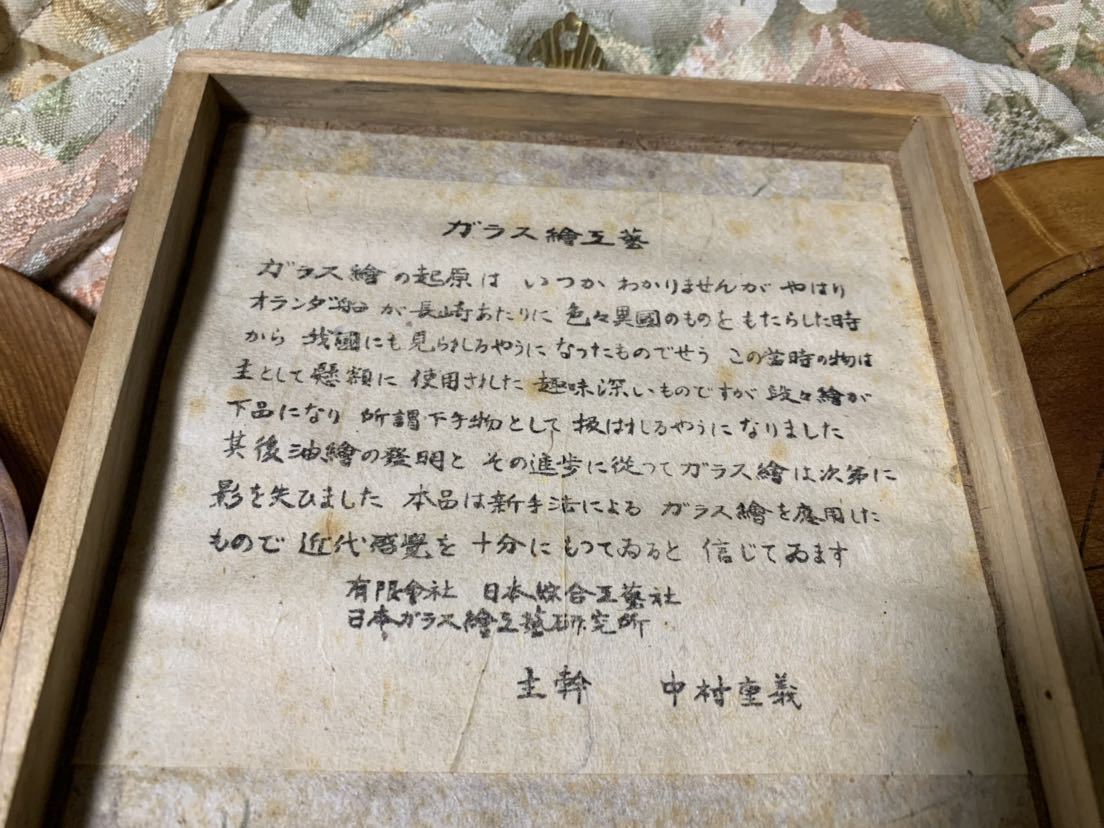 ガラス繪工藝
ガラス繪の起原は いつか わかりませんが やはり
オランダ船 が 長崎あたりに 色々異國のものを もたらした時
から 我國にも 見られるやうに なつたものでせう この當時の物は
主として 懸額に 使用された 趣味深いものですが 段々繪が
下品になり 所謂下手物として 扱はれるやうに なりました
其後油繪の發明と その進歩に從つて ガラス繪は次第に
影を失ひました 本品は新手法による ガラス繪を應用した
もので 近代感覺を 十分に もつてゐると 信じてゐます
有限會社 日本綜合工藝社
日本ガラス繪工藝研究所
主幹 中村重義